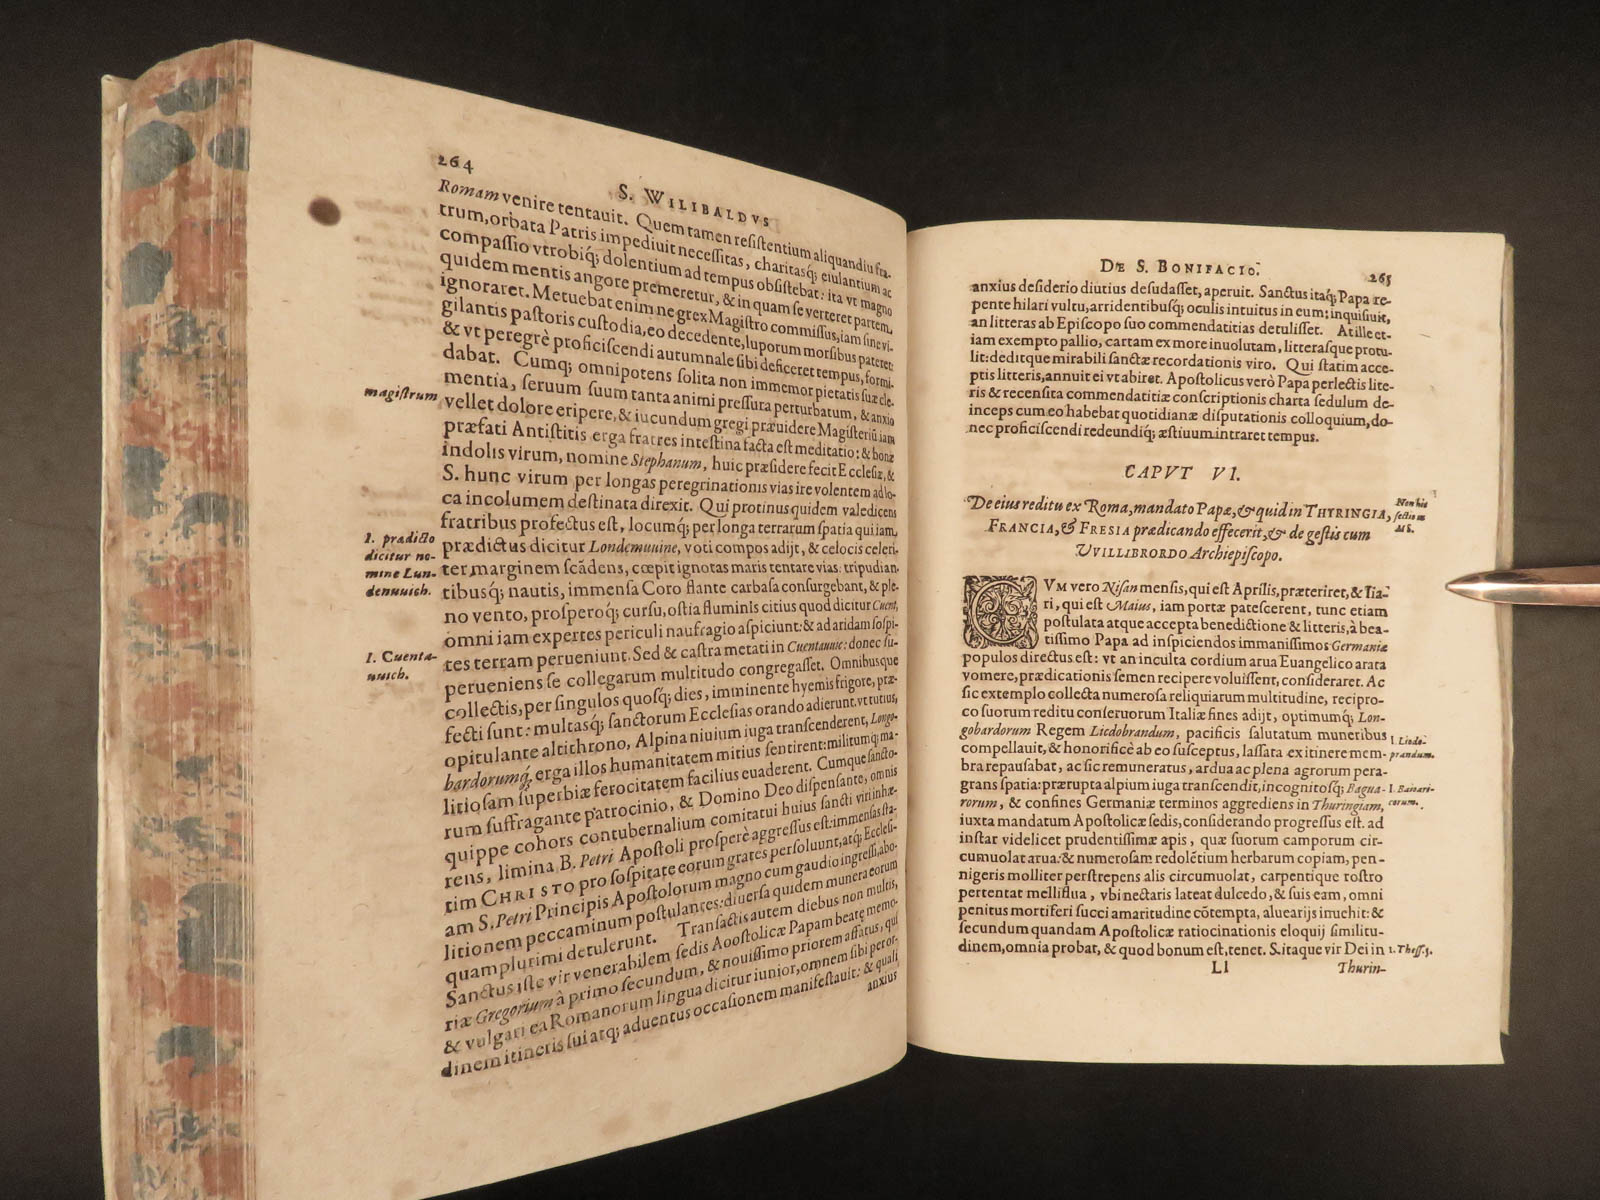 264
S. WILIBALDVS
Romam venire tentauit. Quem tamen resistentium aliquandiu fra-
trum, orbata Patris impediuit necessitas, charitasq; eiulantium ac
compassio vtrobiq; dolentium ad tempus obsistebat: ita vt magno
quidem mentis angore premeretur, & in quam se verteret partem,
ignoraret. Metuebat enim ne grex Magistro commissus, iam sine vi-
gilantis pastoris custodia, eo decedente, luporum morsibus pateret:
& vt peregrè proficiscendi autumnale sibi deficeret tempus, formi-
dabat. Cumq; omnipotens solita non immemor pietatis suæ cle-
mentia, seruum suum tanta animi pressura perturbatum, & anxio
magistrum
vellet dolore eripere, & iucundum gregi præuidere Magisteriũ iam
præfati Antistitis erga fratres intestina facta est meditatio: & bonæ
indolis virum, nomine Stephanum, huic præsidere fecit Ecclesiæ, &
S. hunc virum per longas peregrinationis vias ire volentem ad lo-
ca incolumem destinata direxit. Qui protinus quidem valedicens
fratribus profectus est, locumq; per longa terrarum spatia qui iam,
l. prædicto
dicitur no-
mine Lun-
denuuich.
prædictus dicitur Londemuuine, voti compos adijt, & celocis celeri-
ter marginem scãdens, cœpit ignotas maris tentare vias: tripudian-
tibusq; nautis, immensa Coro flante carbasa consurgebant, & ple-
no vento, prosperoq; cursu, ostia fluminis citius quod dicitur Cuent,
omni iam expertes periculi naufragio aspiciunt: & ad aridam sospi-
tes terram perueniunt. Sed & castra metati in Cuentauuic: donec su-
l. Cuenta-
uuich.
perueniens se collegarum multitudo congregasset. Omnibusque
collectis, per singulos quosq; dies, imminente hyemis frigore, præ-
fecti sunt: multasq; sanctorum Ecclesias orando adierunt, vt tutius,
opitulante altithrono, Alpina niuium iuga transcenderent, Longo-
bardorumq; erga illos humanitatem mitius sentirent: militumq; ma-
litiosam superbiæ ferocitatem facilius euaderent. Cumque sancto-
rum suffragante patrocinio, & Domino Deo dispensante, omnis
quippe cohors contubernalium comitatui huius sancti viri inhæ-
rens, limina B. Petri Apostoli prosperè aggressus est: immensas sta-
tim CHRISTO pro sospitate eorum grates persoluunt, atq; Ecclesi-
am S. Petri Principis Apostolorum magno cum gaudio ingressi, abo-
litionem peccaminum postulantes: diuersa quidem munera eorum
quamplurimi detulerunt. Transactis autem diebus non multis,
Sanctus iste vir venerabilem sedis Aoostolicæ Papam beatę memo-
riæ Gregorium à primo secundum, & nouissimo priorem affatus, qui
& vulgari ea Romanorum lingua dicitur iunior, omnem sibi per or-
dinem itineris sui atq; aduentus occasionem manifestauit: & quasi
anxius
DE S. BONIFACIO.
265
anxius desiderio diutius desudasset, aperuit. Sanctus itaq; Papa re-
pente hilari vultu, arridentibusq; oculis intuitus in eum: inquisiuit,
an litteras ab Episcopo suo commendatitias detulisset. At ille et-
iam exempto pallio, cartam ex more inuolutam, litterasque protu-
lit: deditque mirabili sanctæ recordationis viro. Qui statim acce-
ptis litteris, annuit ei vt abiret. Apostolicus verò Papa perlectis lite-
ris & recensita commendatitiæ conscriptionis charta sedulum de-
inceps cum eo habebat quotidianæ disputationis colloquium, do-
nec proficiscendi redeundiq; æstiuum intraret tempus.
CAPVT VI.
De eius reditu ex Roma, mandato Papæ, & quid in THYRINGIA,
FRANCIA, & FRESIA prædicando effecerit, & de gestis cum
VVILLIBRORDO Archiepiscopo.
Non hic
sectio in
MS.
CVM vero Nisan mensis, qui est Aprilis, præteriret, & Iia-
ri, qui est Maius, iam portæ patescerent, tunc etiam
postulata atque accepta benedictione & litteris, à bea-
tissimo Papa ad inspiciendos immanissimos Germaniæ
populos directus est: vt an inculta cordium arua Euangelico arata
vomere, prædicationis semen recipere voluissent, consideraret. Ac
sic extemplo collecta numerosa reliquiarum multitudine, recipro-
co suorum reditu conseruorum Italiæ fines adijt, optimumq; Lon-
gobardorum Regem Liodobrandum, pacificis salutatum muneribus
l. Liodo-
prandum.
compellauit, & honorificè ab eo susceptus, lassata ex itinere mem-
bra repausabat, ac sic remuneratus, ardua ac plena agrorum pera-
grans spatia: prærupta alpium iuga transcendit, incognitosq; Bagua-
l. Baioari-
corum.
rorum, & confines Germaniæ terminos aggrediens in Thuringiam,
iuxta mandatum Apostolicæ sedis, considerando progressus est. ad
instar videlicet prudentissimæ apis, quæ suorum camporum cir-
cumuolat arua: & numerosam redolẽtium herbarum copiam, pen-
nigeris molliter perstrepens alis circumuolat, carpentique rostro
pertentat melliflua, vbi nectaris lateat dulcedo, & suis eam, omni
penitus mortiferi succi amaritudine cõtempta, aluearijs inuehit: &
secundum quandam Apostolicæ ratiocinationis eloquij similitu-
dinem, omnia probat, & quod bonum est, tenet. S. itaque vir Dei in
1. Thess. 5.
Ll
Thurin-